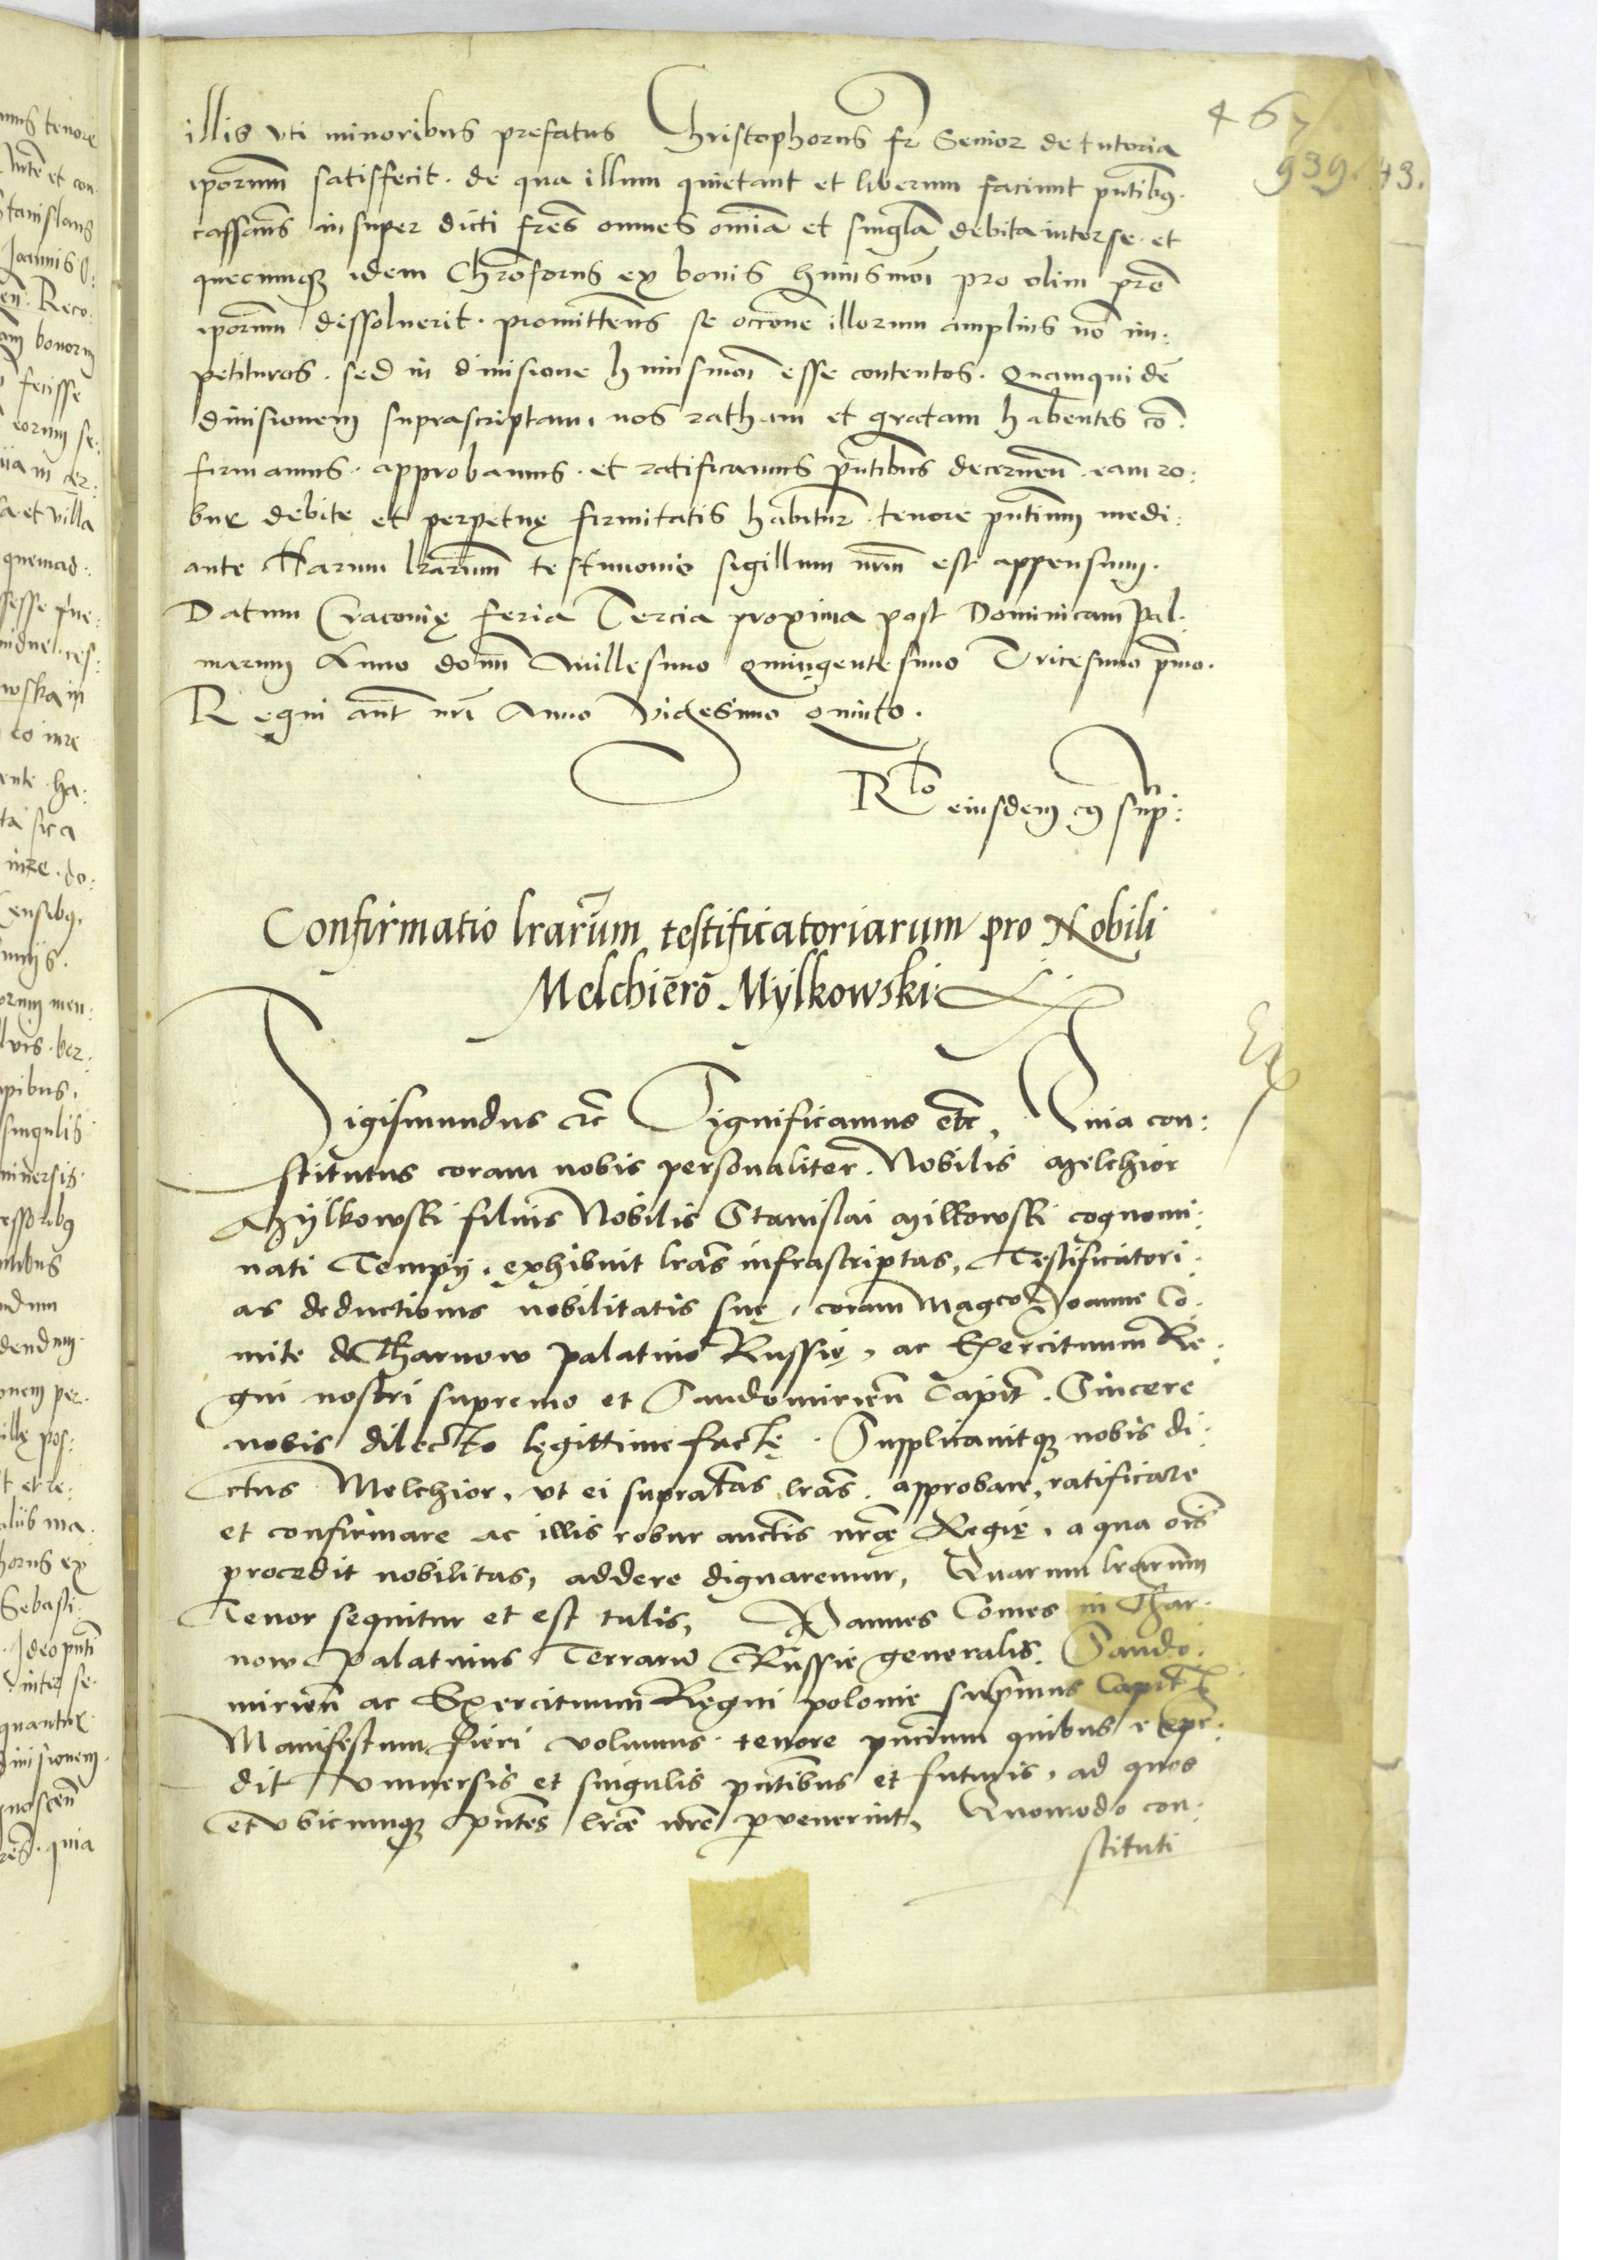 467
939. 43.
illis vti minoribus prefatus Christophorus fr Senior de tutoria
iporum satisfecit. de qua illum quietant et liberum faciunt pntibus.
cassans insuper dicti fres omnes omnia et singla debita inter se. et
quecumque idem Chroforus ex bonis huiusmoi pro olim pre
iporum dissoluerit. promittens se occone illorum amplius no im:
petituros. sed in diuisione huiusmoi esse contentos. Quamquidem
diuisionem suprascriptam nos ratham et gratam habentes co:
firmamus. approbamus. et ratificamus pntibus decernen eam ro:
bur debite et perpetuę firmitatis habitur. tenore pntium medi:
ante Harum lrarum testimonio sigillum nrm est appensum.
Datum Cracovię feria Tercia proxima post Dominicam Pal:
marum Anno domi Millesimo quingentesimo Tricesimo pmo.
Regni aut nri Anno Vicesimo quinto.
Rlo eiusdem cuius sup:
Confirmatio lrarum testificatoriarum pro Nobili
Melchiero Mylkowski
Sigismundus etc Significamus etc, Quia con:
stitutus coram nobis personaliter. Nobilis Melchior
Mylkowski filius Nobilis Stanislai Milkowski cognomi:
nati Tempij. exhibuit lras infrascriptas, Testificatori:
as deductionis nobilitatis suę, coram Magco Joanne Co:
mite de Tharnow palatino Russię, ac Exercituum Re:
gni nostri supremo et Sandomirien Capit. Sincere
nobis dilecto legittime factę. Supplicauitque nobis di:
ctus Melchior, vt ei supradictas lras. approbare, ratificare
et confirmare ac illis robur auctis nrae Regię, a qua ois
procedit nobilitas, addere dignaremur, Quarum lrarum
Tenor sequitur et est talis, Joannes Comes in Thar:
now Palatinus Terrarum Russie generalis. Sando:
mirien ac Exercituum Regni polonie supmus Capit
Manifestum fieri volumus. tenore pntium quibus expe:
dit vniuersis et singulis pntibus et futuris, ad quos
et vbicumque pntes lrae nre puenerint, Quomodo con:
stituti